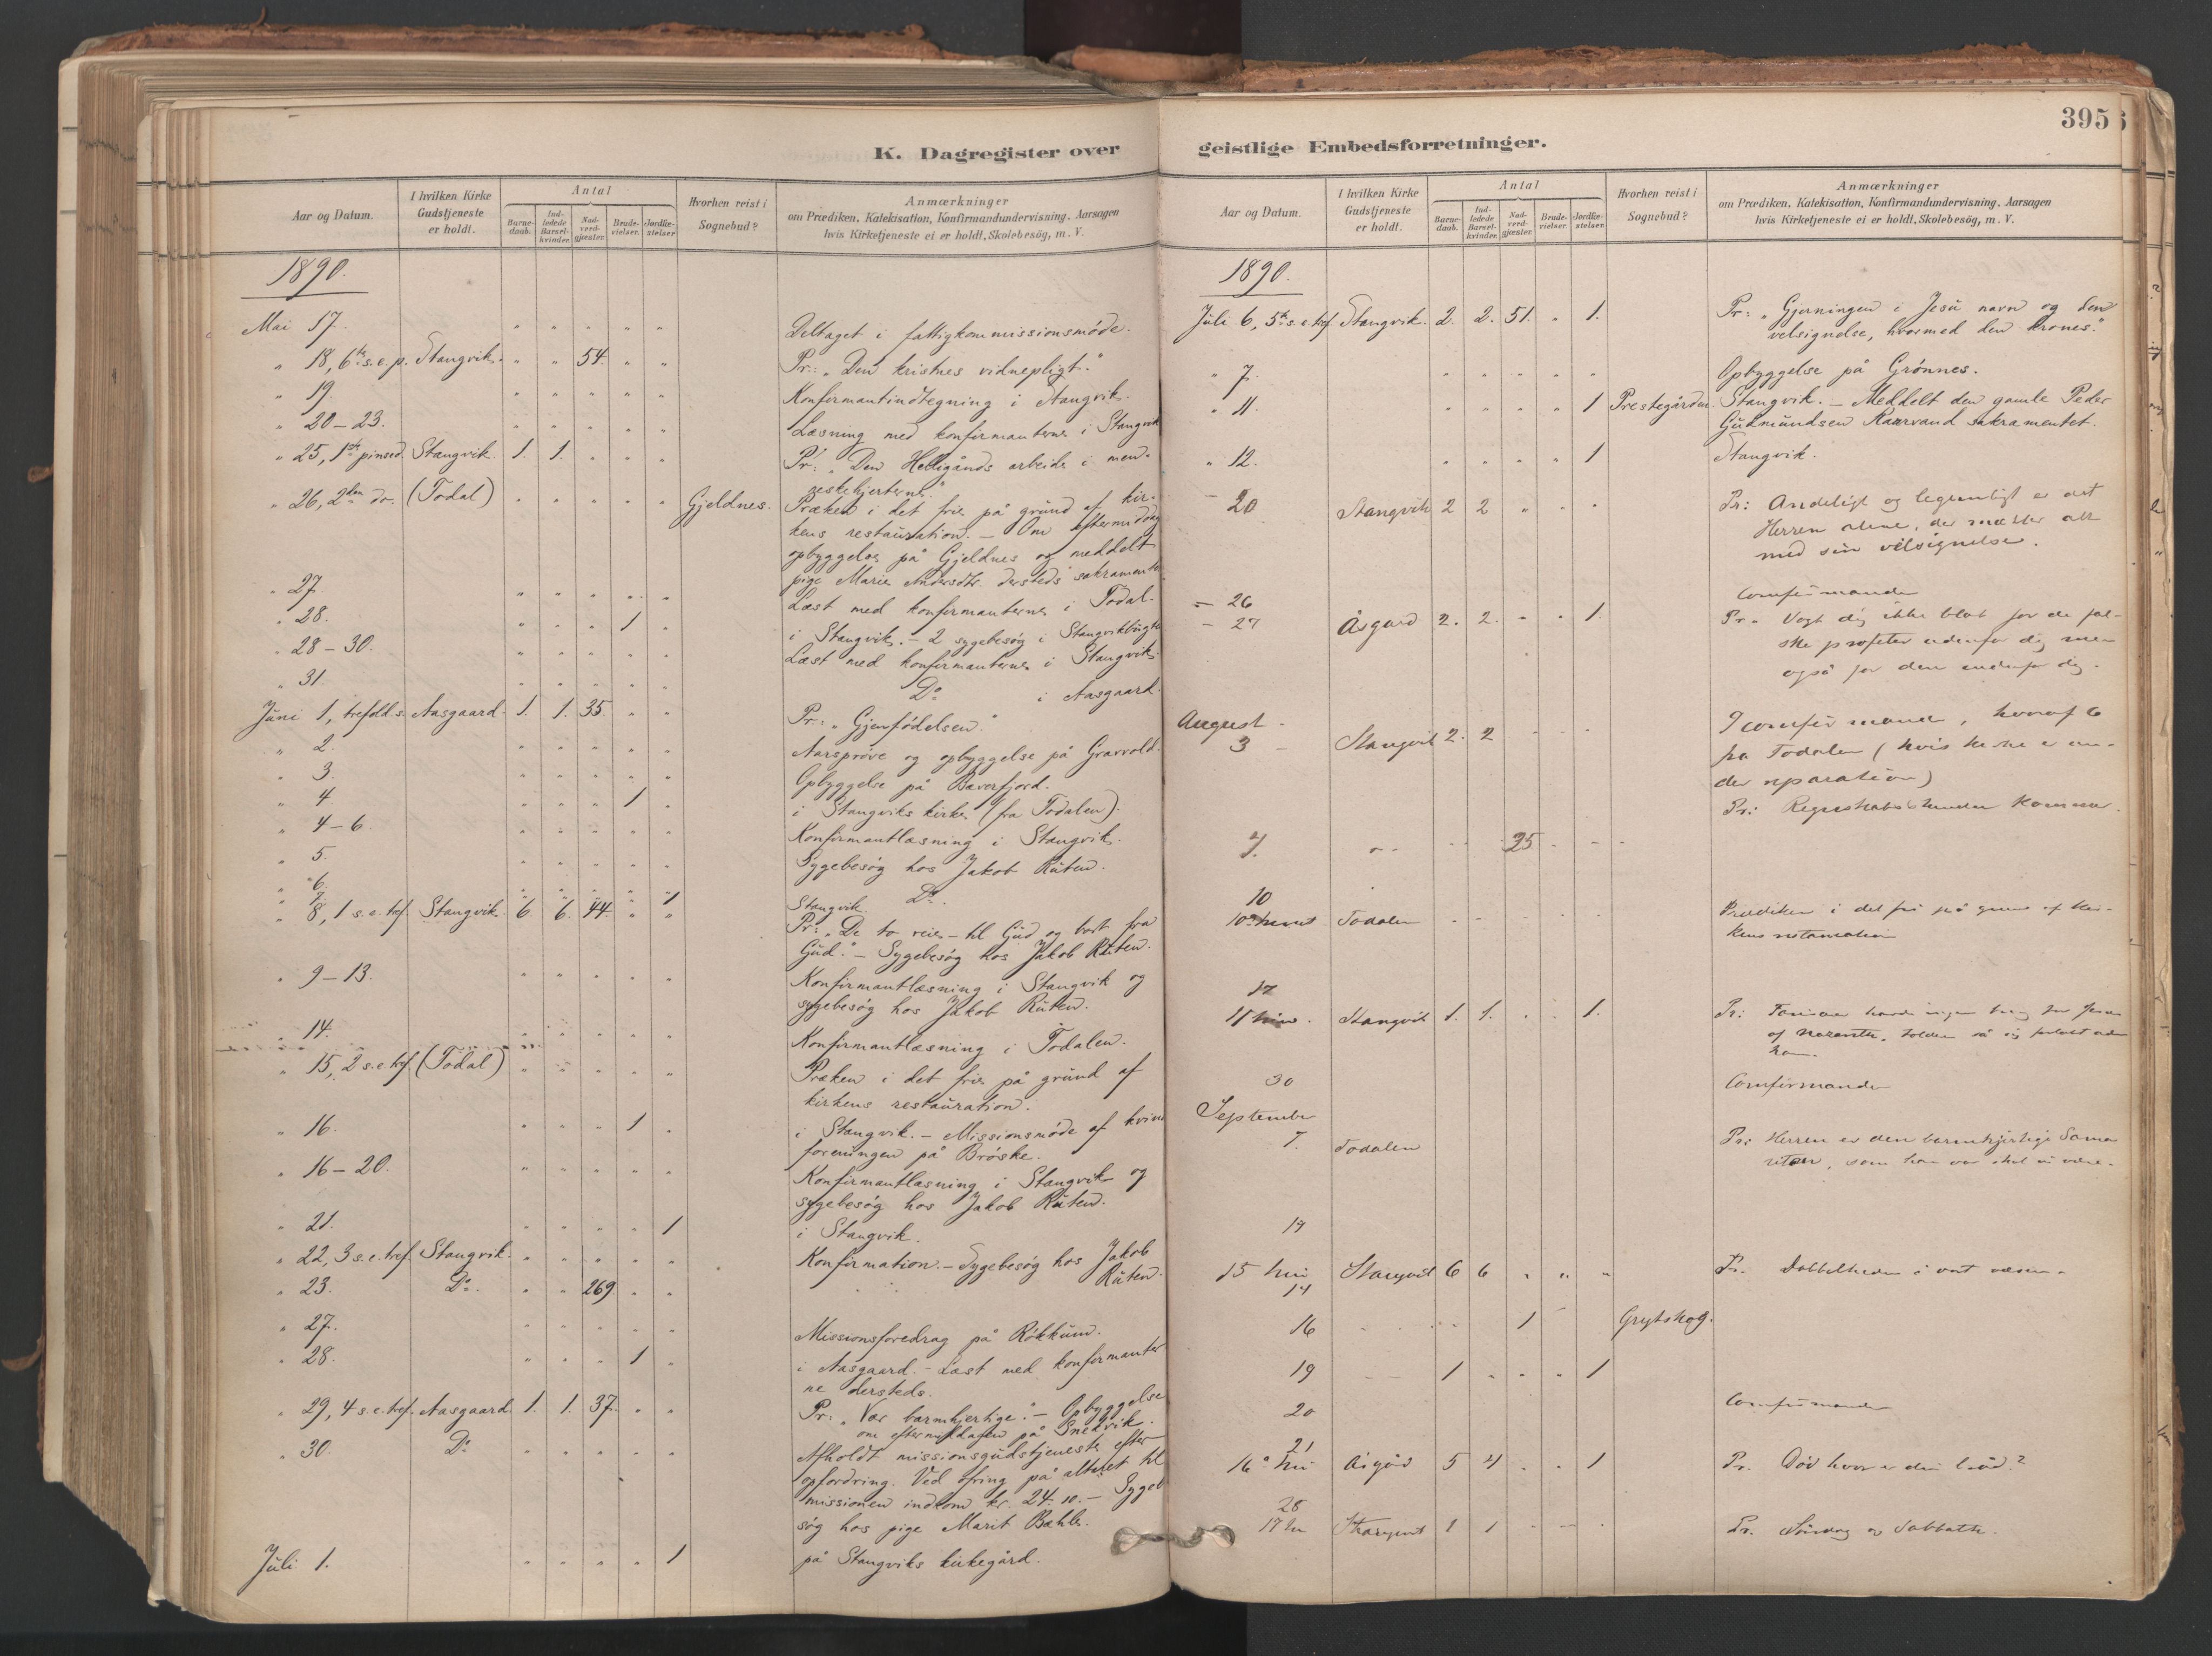 395
K. Dagregister over
Aar og Datum.
I hvilken Kirke Gudstjeneste er holdt.
Antal
Barne-daab.
Ind-ledede Barsel-kvinder.
Nad-verd-gjæster.
Brude-vielser.
Jordfæ-stelser.
Hvorhen reist i Sognebud?
Anmærkninger
om Prædiken, Katekisation, Konfirmandundervisning, Aarsagen
hvis Kirketjeneste ei er holdt, Skolebesög, m. V.
1890.
Mai 17. " " " " " Deltaget i fattigkommissionsmøde.
" 18, 6te s. e. p. Stangvik. " " 54. " " Pr.: „Den kristnes vidnepligt."
" 19. " " " " " Konfirmantindtegning i Stangvik.
" 20-23. " " " " " Læsning med konfirmanterne i Stangvik
" 25, 1ste pinsed. Stangvik. 1. 1. " " " Pr.: „Den Helligånds arbeide i men-
neskehjerterne."
" 26, 2den do. (Todal) " " " " " Gjeldnes. Præken i det frie på grund af kir-
kens restauration. - Om eftermiddag
opbyggelse på Gjeldnes og meddelt
pige Marie Andersdtr. dersteds sakramentet
" 27. " " " " " Læst med konfirmanterne i Todal.
" 28. " " " 1 " i Stangvik. - 2 sygebesøg i Stangvikbugten
" 28-30. " " " " " Læst med konfirmanterne i Stangvik.
" 31. " " " " " Do i Aasgaard.
Juni 1, trefold. s. Aasgaard. 1. 1. 35. " " Pr.: „Gjenfødelsen."
" 2. " " " " " Aarsprøve og opbyggelse på Grarvold.
" 3. " " " " " Opbyggelse på Bæverfjord.
" 4 " " " 1 " i Stangviks kirke (fra Todalen).
" 4-6. " " " " " Konfirmantlæsning i Stangvik.
" 5. " " " " " Sygebesøg hos Jakob Ruten.
" 6. " " " " " Do.
" 7. " " " " 1 Stangvik
" 8, 1 s. e. tref. Stangvik. 6. 6. 44. " " Pr.: „De to veie - til Gud og bort fra
Gud." - Sygebesøg hos Jakob Ruten.
" 9-13. " " " " " Konfirmantlæsning i Stangvik og
sygebesøg hos Jakob Ruten.
" 14. " " " " " Konfirmantlæsning i Todalen.
" 15, 2 s. e. tref. (Todal) " " " " " Præken i det frie på grund af
kirkens restauration.
" 16. " " " 1 " i Stangvik. - Missionsmøde af kvinde
foreningen på Brøske.
" 16-20. " " " " " Konfirmantlæsning i Stangvik og
sygebesøg hos Jakob Ruten.
" 21. " " " " 1 i Stangvik.
" 22, 3 s. e. tref. Stangvik. " " " " " Konfirmation. - Sygebesøg hos Jakob
Ruten.
" 23. Do. " " 269 " "
" 27. " " " " " Missionsforedrag på Røkkum.
" 28. " " " 1 " i Aasgaard. - Læst med konfirmanter
ne dersteds.
" 29, 4 s. e. tref. Aasgaard. 1. 1. 37. " " Pr.: „Vær barmhjertige." - Opbyggelse
om eftermiddagen på Snekvik.
" 30. Do " " " " " Afholdt missionsgudstjeneste efter
opfordring. Ved ofring på alteret til
missionen indkom kr. 24.10. - Sygeb
søg hos pige Marit Bæhle.
Juli 1. " " " " 1 på Stangviks kirkegård.
geistlige Embedsforretninger.
Aar og Datum.
I hvilken Kirke Gudstjeneste er holdt.
Antal
Barne-daab.
Ind-ledede Barsel-kvinder.
Nad-verd-gjæster.
Brude-vielser.
Jordfæ-stelser.
Hvorhen reist i Sognebud?
Anmærkninger
om Prædiken, Katekisation, Konfirmandundervisning, Aarsagen
hvis Kirketjeneste ei er holdt, Skolebesög, m. V.
1890.
Juli 6, 5te s. e. tref. Stangvik. 2. 2. 51. " 1. Pr.: „Gjerningen i Jesu navn og den
velsignelse, hvormed den krones."
" 7. " " " " " Opbyggelse på Grønnes.
" 11. " " " " 1 Prestegården. Stangvik. - Meddelt den gamle Peder
Gudmundsen Raarvand sakramentet.
" 12. " " " " 1 Stangvik.
- 20 Stangvik 2 2 " " " Pr: Andeligt og legemligt er det
Herren alene, der mætter alt
med sin velsignelse.
- 26 Comfirmander
- 27 Åsgård 2. 2. " " 1. Pr. Vogt dig ikke blot for de fal-
ske profeter udenfor dig men
også for den indenfor dig.
August - 9 comfirmander, hvoraf 6
3 - Stangvik 2. 2 " " " fra Todalen (hvis kirke er un-
der reparation)
Pr: Regnskabets
7. " " 25 " "
10
10de s. e. tref Todalen Prædiken i det fri på grund af kir-
kens restauration
17
11 Stangvik 1. 1. " " 1. Pr:
af Nazareth,
30 Comfirmander
September
7. Todalen Pr: Herren er den barmhjertige Sama
ritan, som
14
15 Stangvik 6 6 " " " Pr. Dobbelheden i vort væsen.
14
16 " " " 1 Grytskog.
19 1 " " " 1
20 Comfirmander
21
16 Åsgård 5 4 " " 1 Pr. Død hvor er din brod?
28
17 Stangvik 1 1 " " " Pr. Søndag og Sabbath.